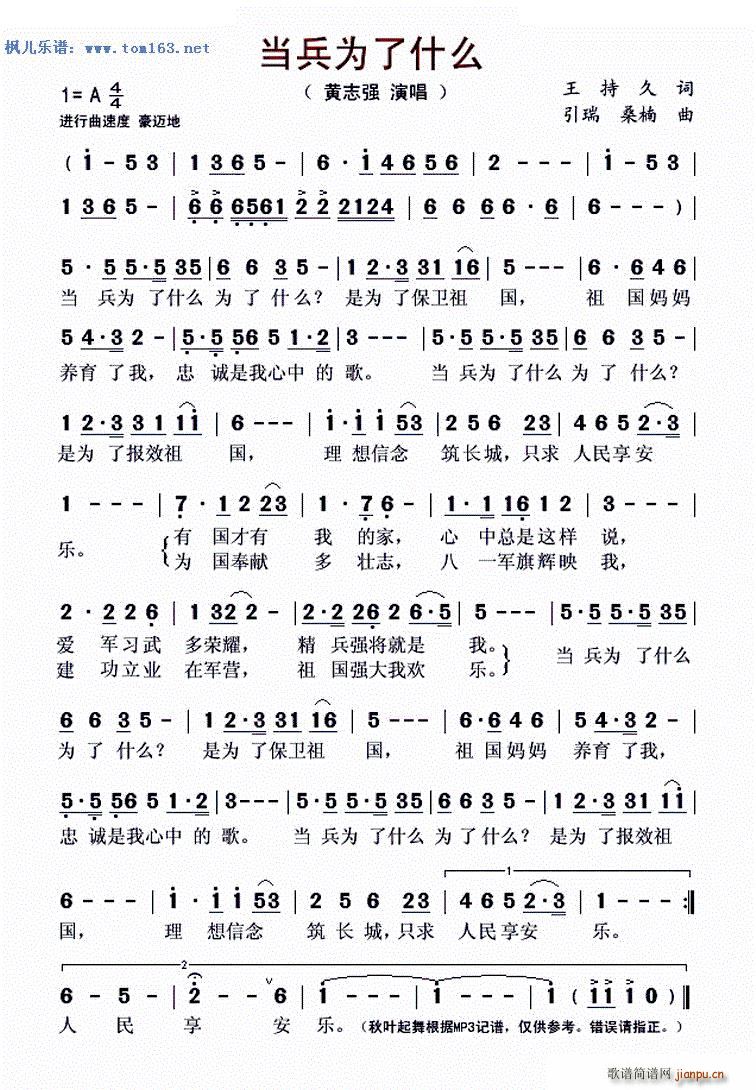 枫儿乐谱：www.tom163.net
当兵为了什么
1=A 4/4
（ 黄志强 演唱 ）
王 持 久 词
进行曲速度 豪迈地
引瑞 桑楠 曲
( i - 5 3 | 1 3 6 5 - | 6 · i 4 6 5 6 | 2 - - - | i - 5 3 |
1 3 6 5 - | 6 6 6561 2 2 2124 | 6 6 6 6 6 · 6 | 6 - - - )
5 · 5 5·5 35 | 6 6 35 - | 1 2·3 31 16 | 5 - - - | 6 · 6 4 6 |
当 兵为 了什么 为 了 什么？ 是为 了保卫祖 国， 祖 国妈妈
5 4·3 2 - | 5·5 56 5 1·2 | 3 - - - | 5·5 5·5 35 | 6 6 35 - |
养育 了我， 忠 诚是我心中 的 歌。 当 兵为 了什么 为 了 什么？
1 2·3 3 1 1i | 6 - - - | i·i i 53 | 2 5 6 23 | 4 6 5 2·3 |
是为 了报效祖 国， 理 想信念 筑长城，只求 人民享安
1 - - - | 7 · 1 2 23 | 1 · 7 6 - | 1·1 16 1 2 | 3 - - - |
乐。 有 国才有 我 的家， 心 中总是这样 说，
为 国奉献 多 壮志， 八 一军旗辉映 我，
2 · 2 2 6 | 1 32 2 - | 2·2 26 2 6·5 | 5 - - - | 5·5 5·5 35 |
爱 军习武 多荣耀， 精 兵强将就是 我。 当 兵为 了什么
建 功立业 在军营， 祖 国强大我欢 乐。
6 6 35 - | 1 2·3 31 16 | 5 - - - | 6·6 4 6 | 5 4·3 2 - |
为 了 什么？ 是为 了保卫祖 国， 祖 国妈妈 养育 了我，
5·5 56 5 1·2 | 3 - - - | 5·5 5·5 35 | 6 6 35 - | 1 2·3 31 1i |
忠 诚是我心中 的 歌。 当 兵为 了什么 为 了什么？ 是为 了报效祖
1
6 - - - | i · i i 53 | 2 5 6 23 | 4 6 5 2·3 | 1 - - - :||
国， 理 想信念 筑 长 城，只求 人民享安 乐。
2
6 - 5 - | 2 · - 6 | i - - - | i - - - | i ( i i i 0 ) ||
人 民 享 安 乐。（秋叶起舞根据MP3记谱，仅供参考。错误请指正。）
歌谱简谱网
jianpu.cn